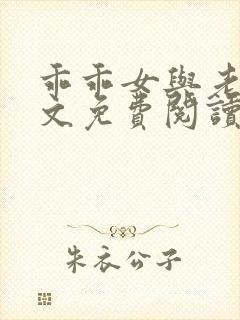 乖乖女與老
文免費閱讀
朱衣公子